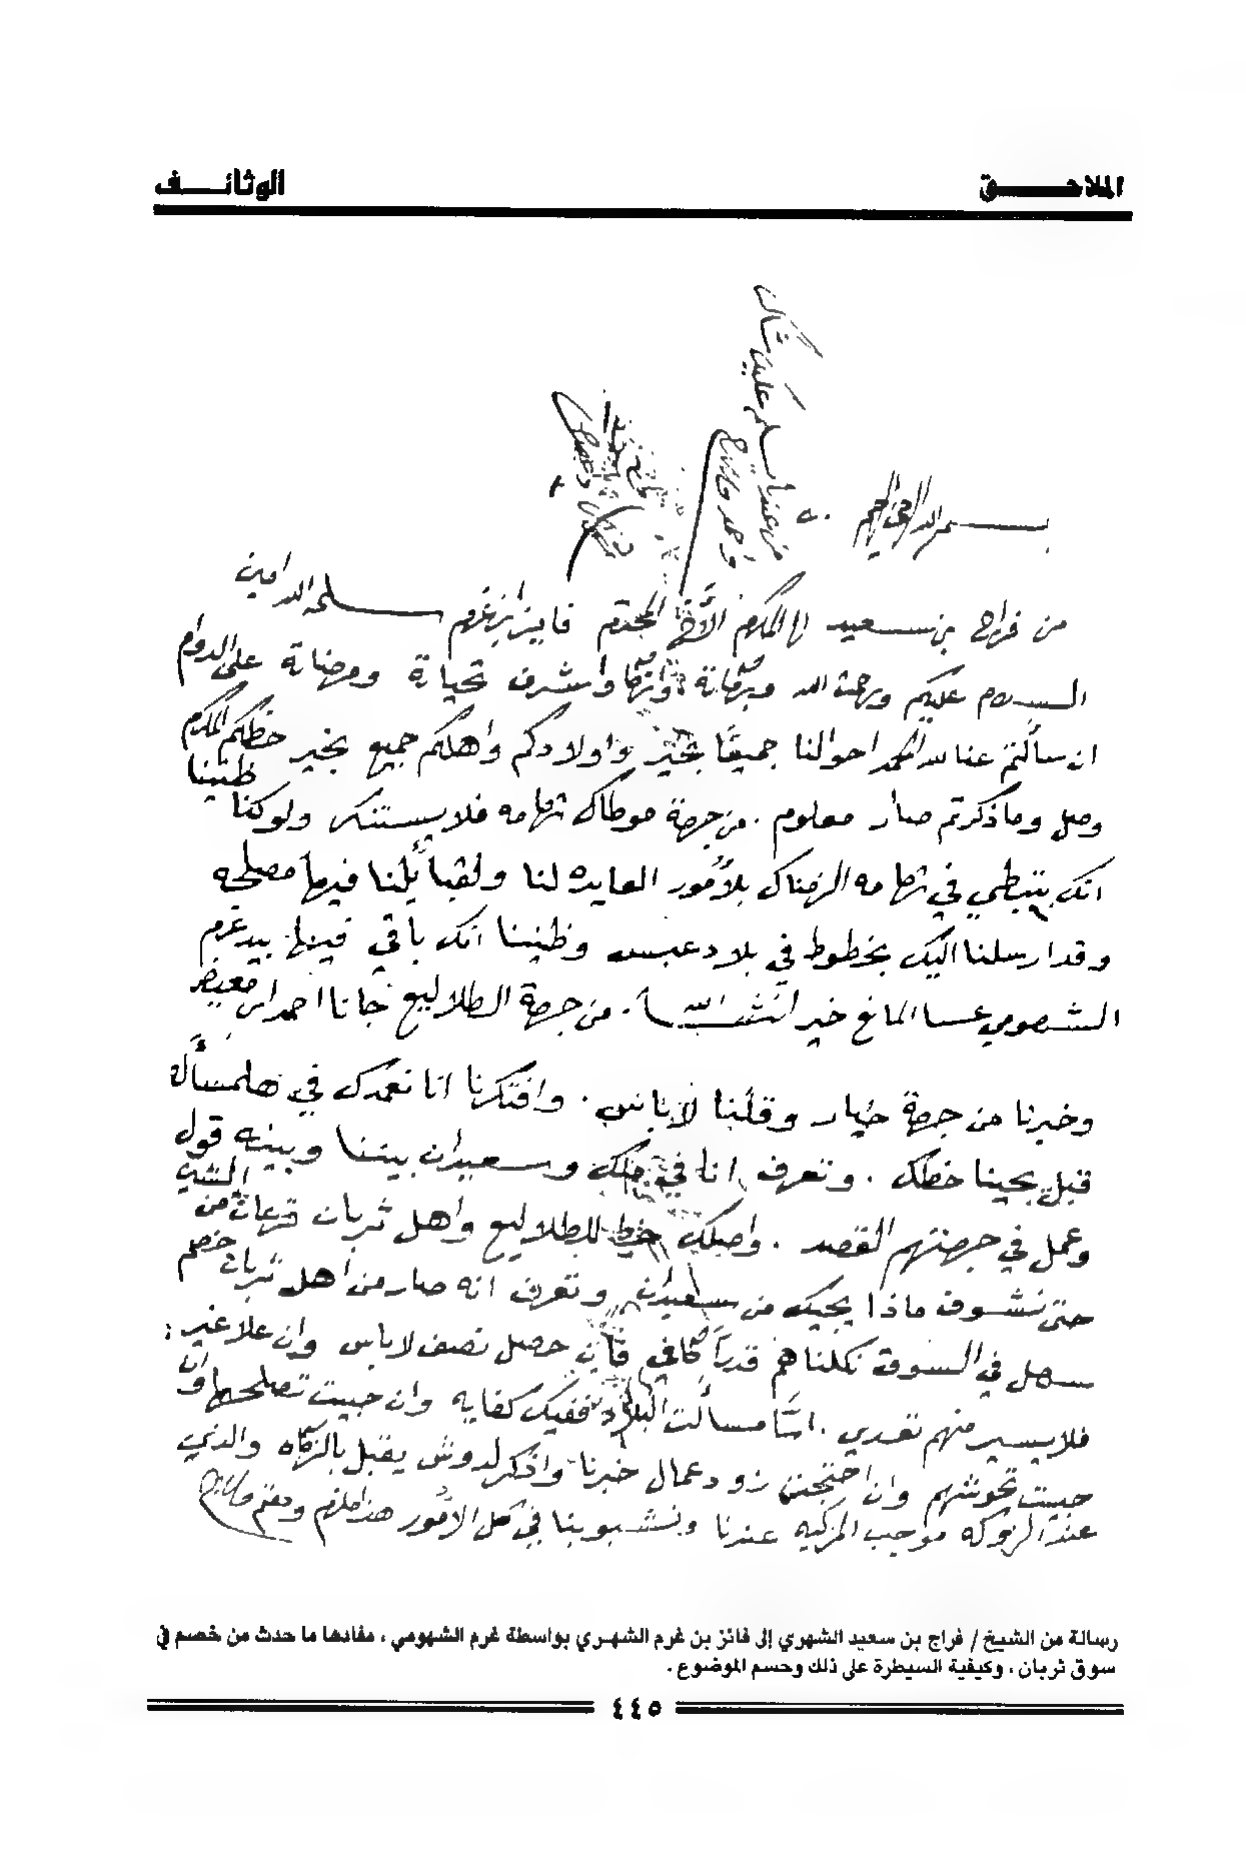 الملاحق
الوثائف
من عندنا يسلم عليك
بسم الله الرحمن الرحيم
من فراج بن سعيد الى المكرم الأخ المحترم فايز ابن غرم سلمه الله امين
السلام عليكم ورحمت الله وبركاتة وازكا واشرف تحياتة ومرضاتة على الدوام
ان سألتم عنا لله الحمد احوالنا جميعًا بخير واولادكم واهلكم جميع بخير خطكم المكرم
وصل وما ذكرتم صار معلوم . من جهة موطاك تهامه فلا يستنكر ولو كنا ظنينا
انك بتبطي في تهامه الزمناك بلأمور العايده لنا ولقبائلنا فيها مصلحه
وقد ارسلنا اليك بخطوط في بلاد عبس وظنينا انك باقي فيها بيد غرم
الشهومي عسا المانع خير انشالله . من جهة الطلاليع جانا احمد ابن معيض
وخبرنا من جهة خيار وقلنا لاباس . وافتكرنا انا نعمدك في هلمسألة
قبل يجينا خطك . وتعرف انا في وسعيدان بيننا وبينه قول
وعمل في جهتهم القصد . واصلك خط للطلاليع واهل ثربان من الشي
حتى نشوف ماذا يجيك من سعيدان وتعرف انه صار من اهل ثربان خصم
سهل في السوق نكلناهم قدرًا كافي فان حصل نصف لاباس وان علا غير
فلا يسير منهم تعدي . امّا مسألت البلاد ففيك كفايه وان حبيت تصلحها وان
حبيت تحوشهم وان احتجت زود عمال خبرنا واذكر لدوش يقبل بالزكاه والذي
عند الزوكه موجب المزكيه عندنا ونشبو بنا في كل الامور هذا ملزم ودمتم
رسالة من الشيخ / فراج بن سعيد الشهري إلى فائز بن غرم الشهري بواسطة غرم الشهومي ، مفادها ما حدث من خصم في
سوق ثربان ، وكيفية السيطرة على ذلك وحسم الموضوع .
٤٤٥